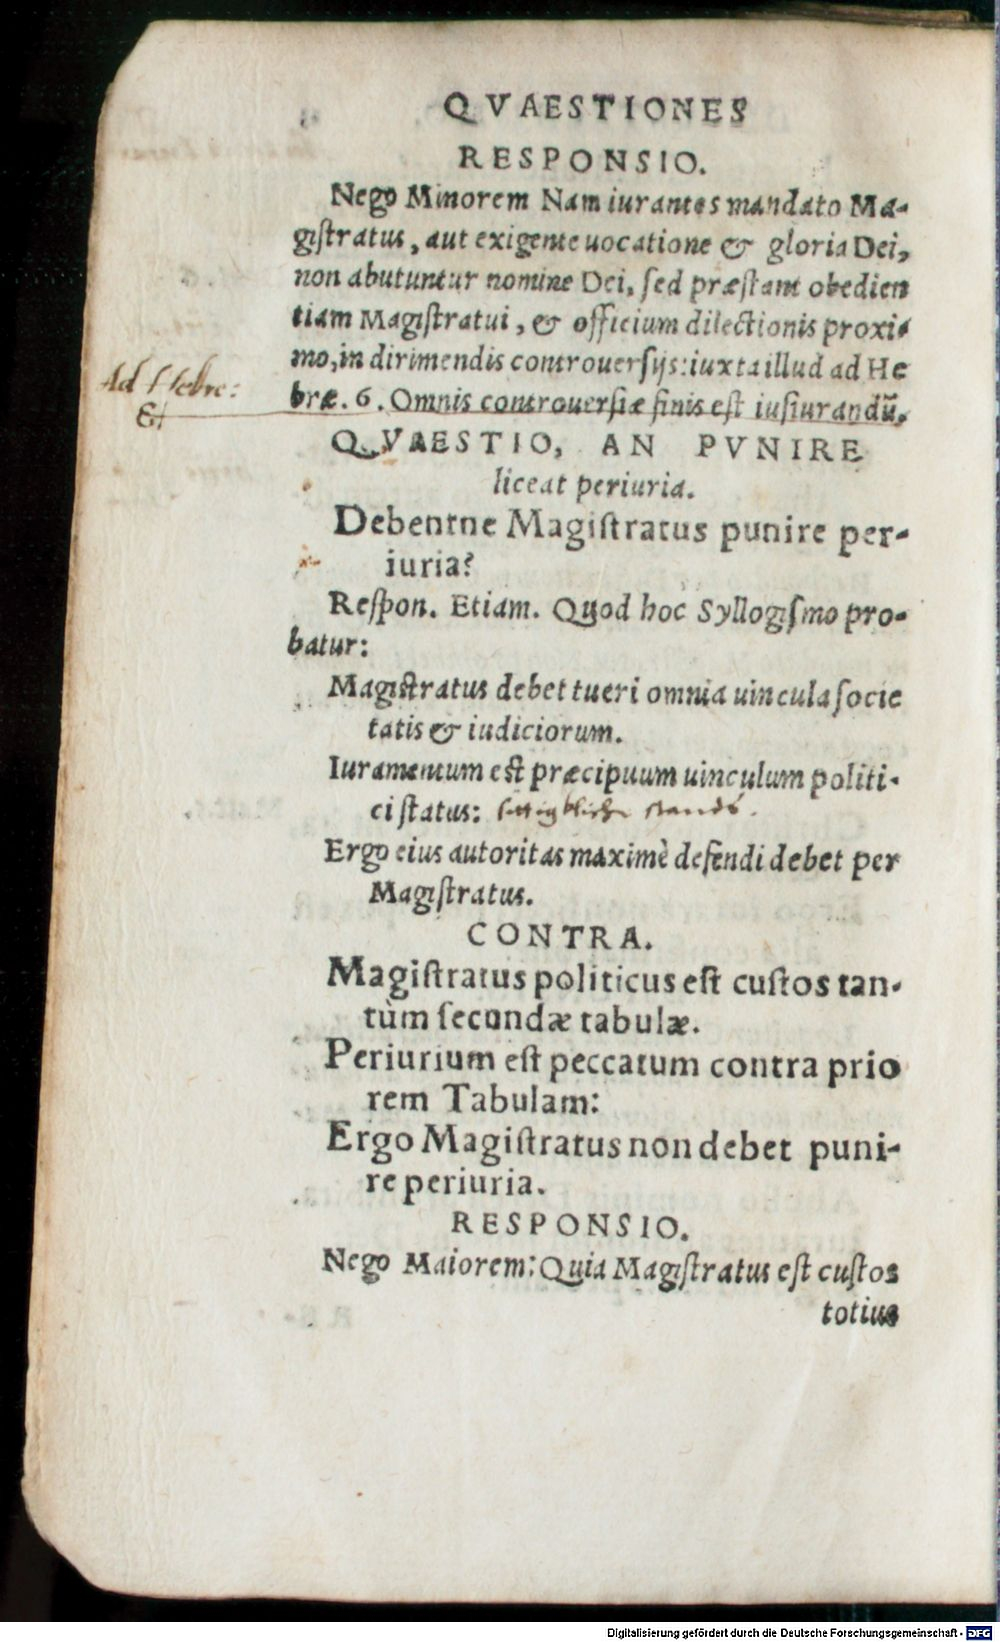 QVAESTIONES
RESPONSIO.
Nego Minorem Nam iurantes mandato Ma-
giſtratus, aut exigente uocatione & gloria Dei,
non abutuntur nomine Dei, ſed præſtant obedien
tiam Magiſtratui, & officium dilectionis proxi-
mo, in dirimendis controuerſijs: iuxta illud ad He
Ad Hebre:
6
bræ. 6. Omnis controuerſiæ finis eſt iuſiurandũ.
QVAESTIO, AN PVNIRE
liceat periuria.
Debentne Magiſtratus punire per-
iuria?
Reſpon. Etiam. Quod hoc Syllogiſmo pro-
batur:
Magiſtratus debet tueri omnia uincula ſocie
tatis & iudiciorum.
Iuramentum eſt præcipuum uinculum politi-
ci ſtatus:
Ergo eius autoritas maximè defendi debet per
Magiſtratus.
CONTRA.
Magiſtratus politicus eſt cuſtos tan-
tùm ſecundæ tabulæ.
Periurium eſt peccatum contra prio
rem Tabulam:
Ergo Magiſtratus non debet puni-
re periuria.
RESPONSIO.
Nego Maiorem: Quia Magiſtratus eſt cuſtos
totius
Digitalisierung gefördert durch die Deutsche Forschungsgemeinschaft - DFG